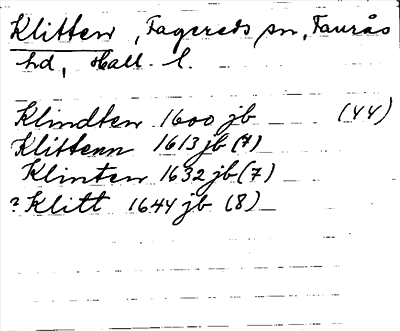 Klitten, Fagereds sn, Faurås
hd, Hall. l.
Klindten 1600 jb (44)
Klittenn 1613 jb (7)
Klinten 1632 jb (7)
? Klitt 1644 jb (8)